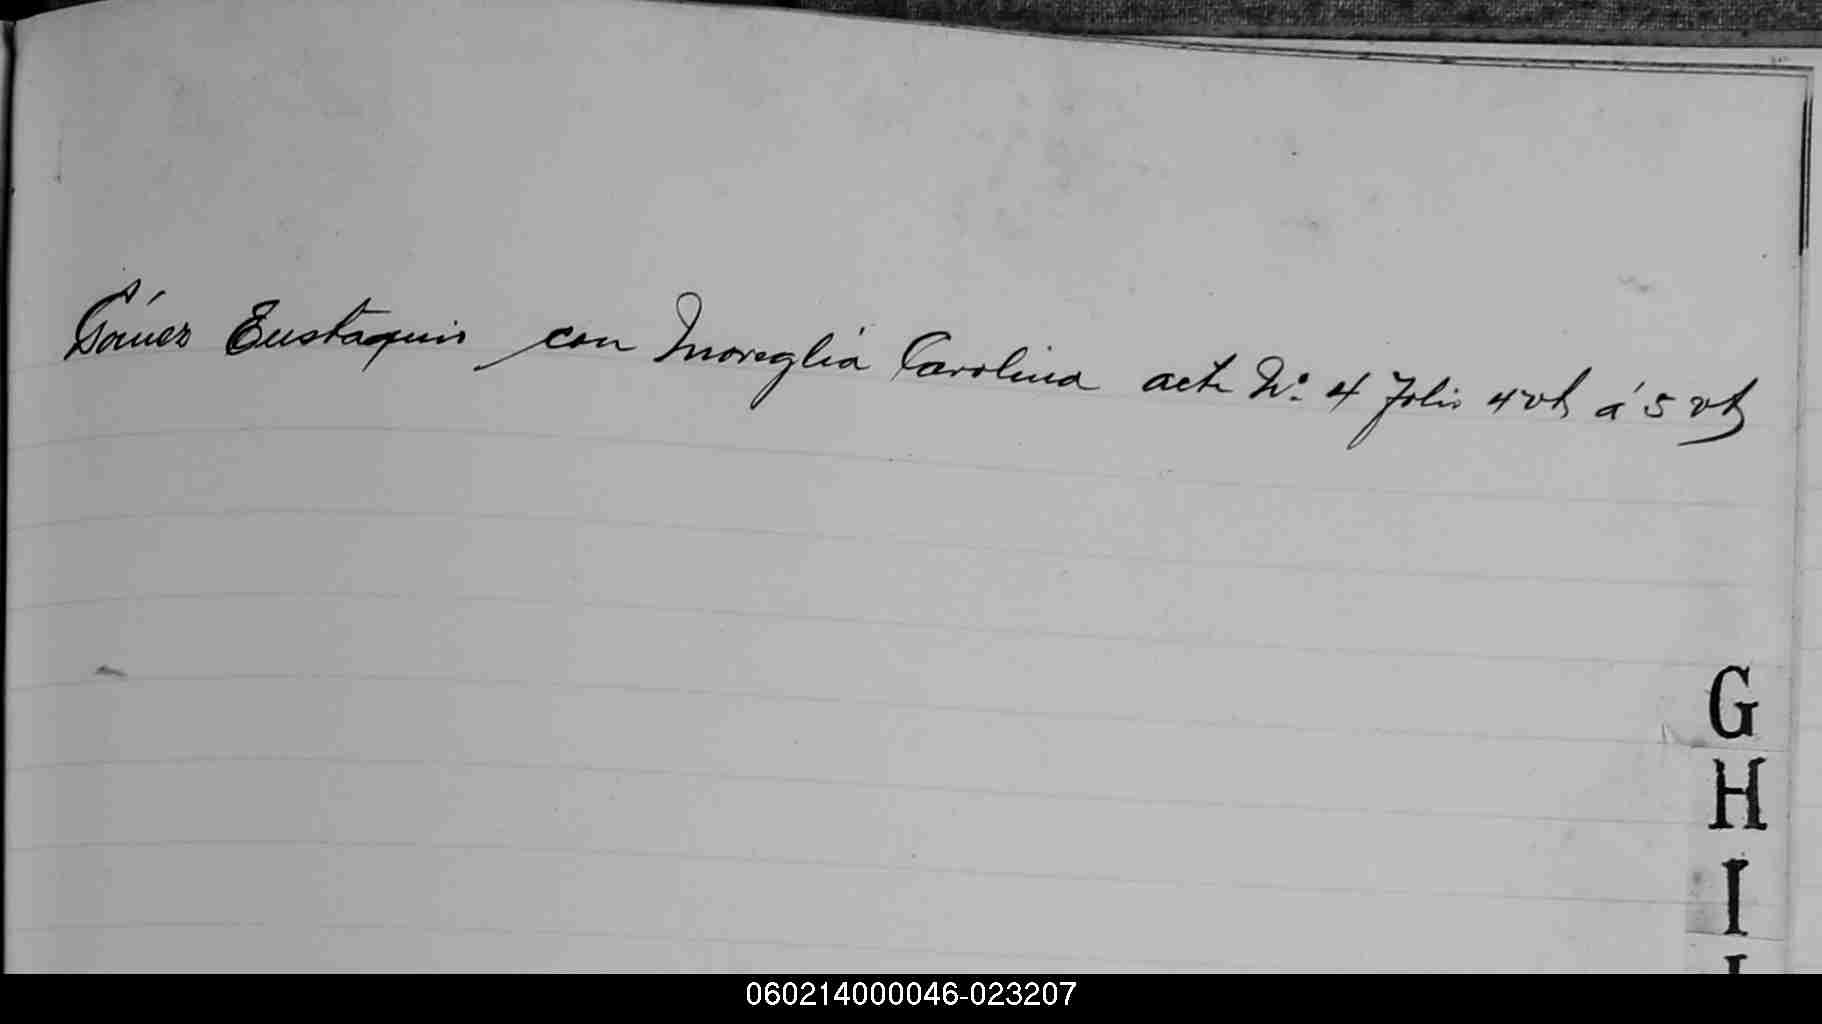 Gómez Eustaquio con Moreglia Carolina acta Nº 4 folio 4 vta á 5 vta
G
H
I
060214000046-023207